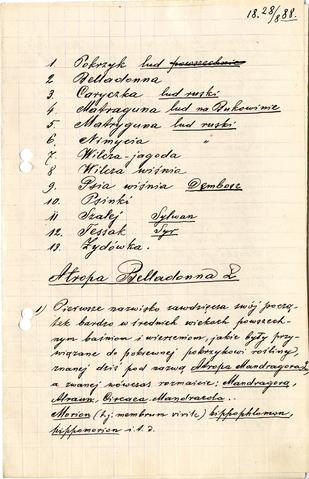 18. 28/8 88.
1 Pokrzyk lud powszechnie
2 Belladonna
3 Caryczka lud ruski
4. Matraguna lud na Bukowinie
5 Matryguna lud ruski
6 Nimycia "
7. Wilcza-jagoda
8 Wilcza wiśnia
9. Psia wiśnia Dembosz
10. Psinki
11 Szalej Sylwan
12. Tessak Syr
13. Żydówka.
Atropa Belladonna L
1) Pierwsze nazwisko zawdzięcza swój począ-
tek bardzo w średnich wiekach powszech-
nym baśniom i wierzeniom, jakie były przy-
wiązane do pokrewnej pokrzykowi rośliny,
znanej dziś pod nazwą Atropa Mandragora L
a zwanej wówczas rozmaicie: Mandragora,
Alraun, Circaea Mandragola..
Morion (t.j. membrum virile) hippophlomon,
hippomorion i.t.d.